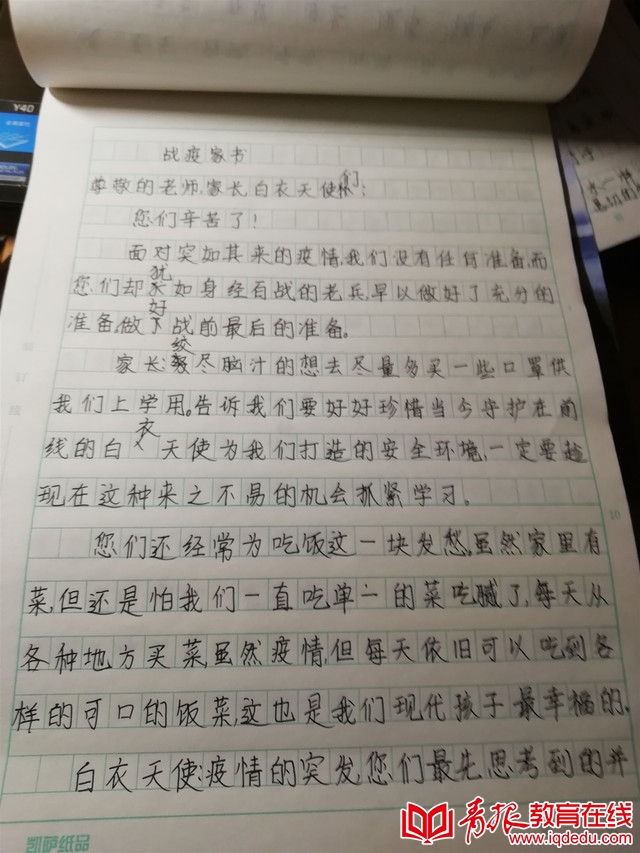 Y40
战疫家书
尊敬的老师,家长,白衣天使们:
您们辛苦了!
面对突如其来的疫情,我们没有任何准备,而
您们却犹如身经百战的老兵,早以做好了充分的
准备,做好战前最后的准备。
家长:绞尽脑汁的想去尽量多买一些口罩供
我们上学用。告诉我们要好好珍惜当今守护在前
线的白衣天使为我们打造的安全环境,一定要趁
现在这种来之不易的机会抓紧学习。
您们还经常为吃饭这一块发愁,虽然家里有
菜,但还是怕我们一直吃单一的菜吃腻了,每天从
各种地方买菜,虽然疫情,但每天依旧可以吃到各
样的可口的饭菜,这也是我们现代孩子最幸福的.
白衣天使:疫情的突发,您们最先思考到的并
10
凯萨纸品
青报教育在线
www.iqdedu.com